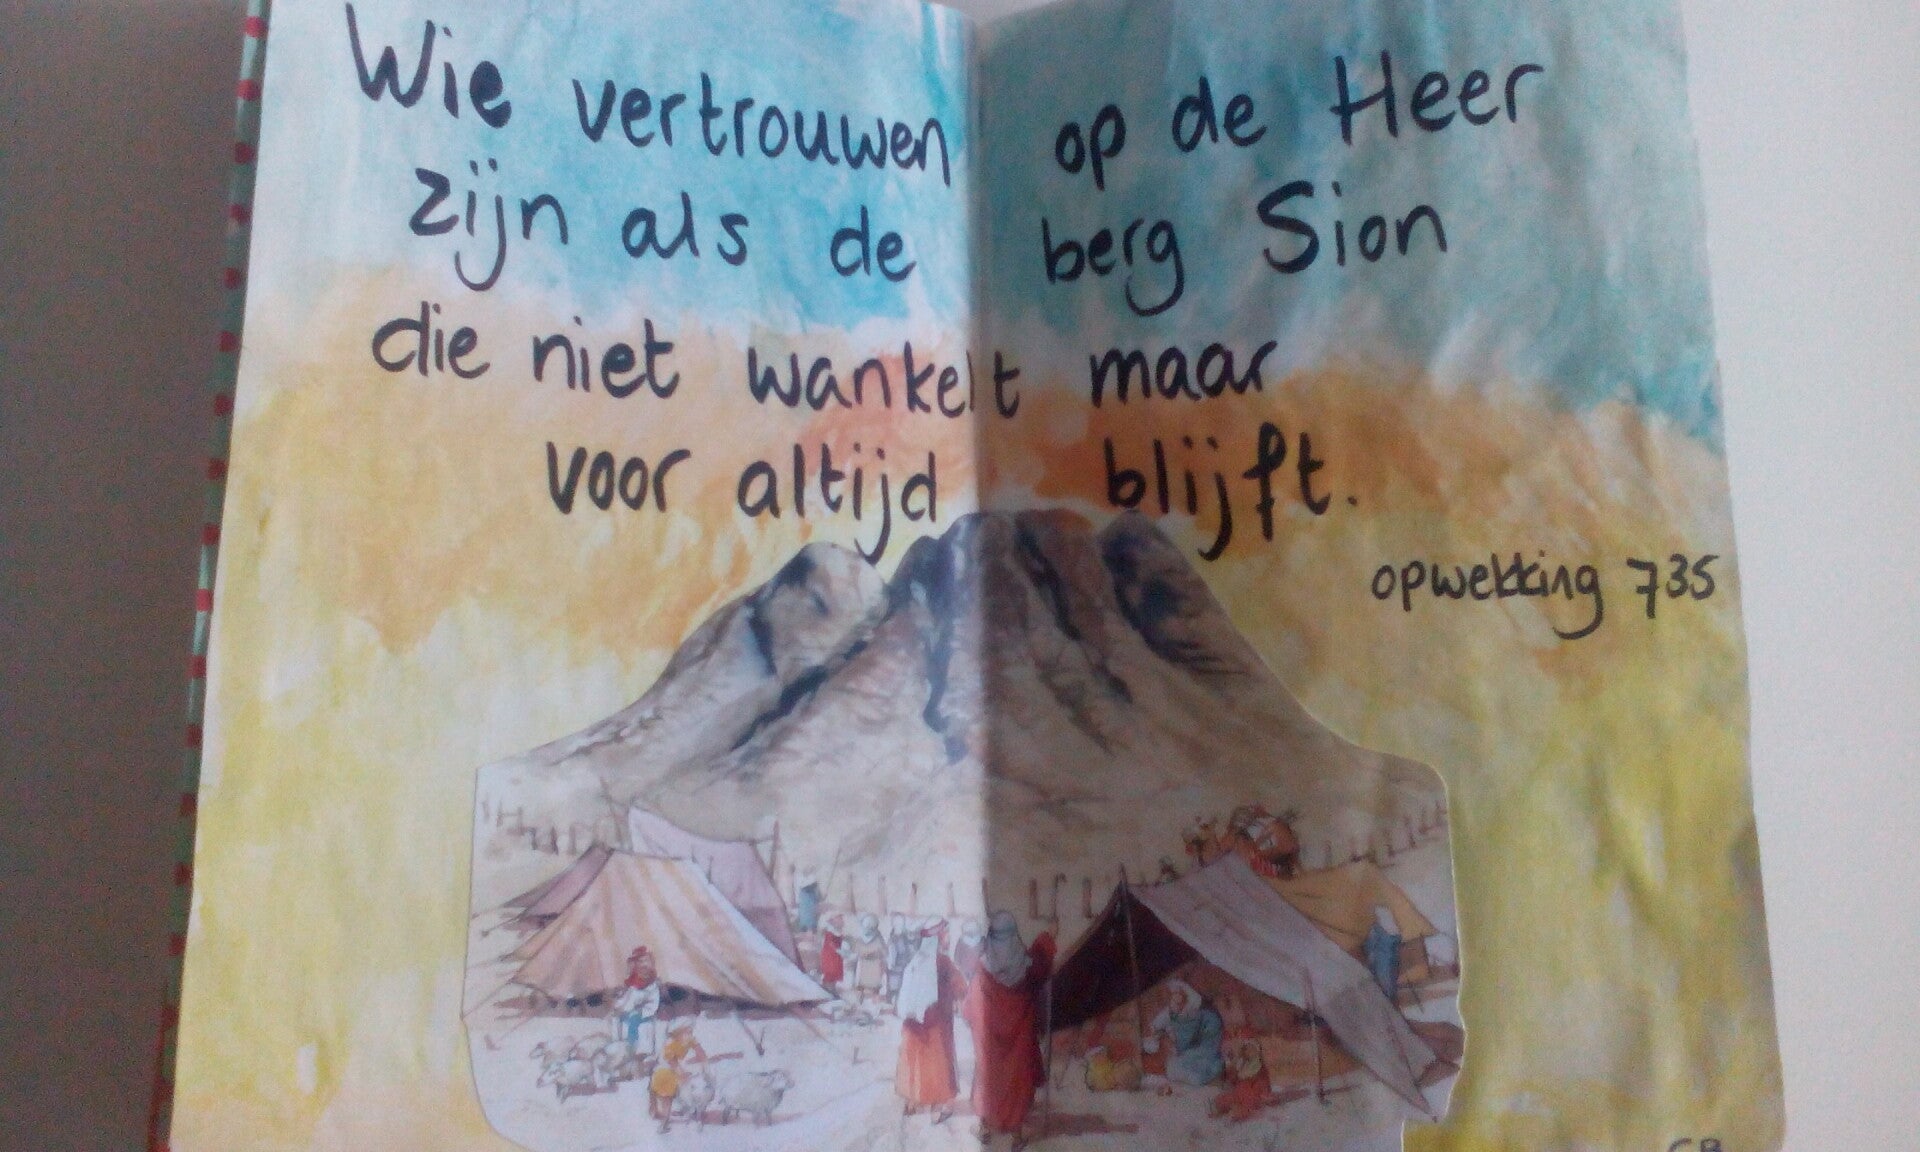 Wie vertrouwen op de Heer
zijn als de berg Sion
die niet wankelt maar
voor altijd blijft.
opwekking 735